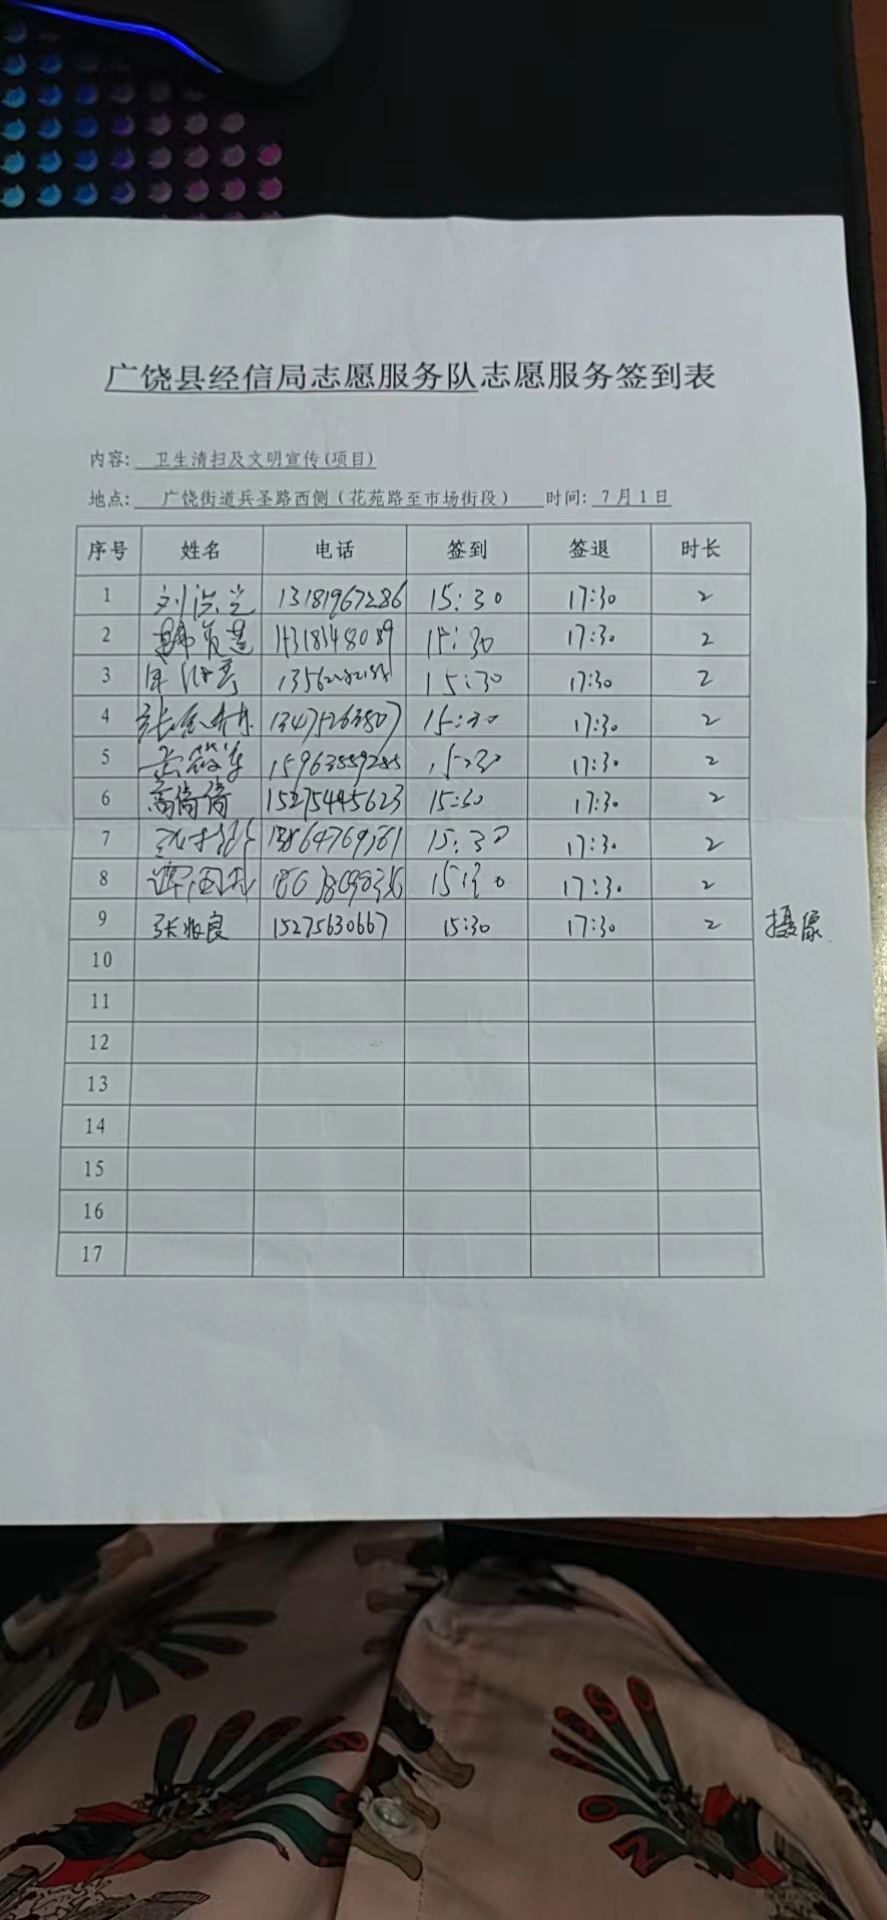 广饶县经信局志愿服务队志愿服务签到表
内容: 卫生清扫及文明宣传(项目)
地点: 广饶街道兵圣路西侧（花苑路至市场街段） 时间: 7月1日
序号 姓名 电话 签到 签退 时长
1 13181967286 15:30 17:30 2
2 15:30 17:30 2
3 15:30 17:30 2
4 15:30 17:30 2
5 15963559285 15:30 17:30 2
6 高倩倩 15275445623 15:30 17:30 2
7 15:30 17:30 2
8 15:30 17:30 2
9 15275630667 15:30 17:30 2 摄像
10
11
12
13
14
15
16
17